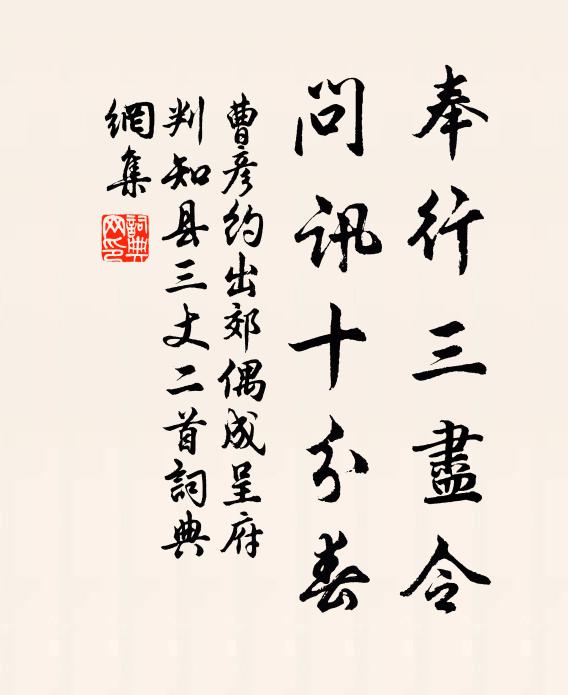 奉行三盡令
問訊十分春
曹彦約出郊偶成呈府
判知县三丈二首詞典
網集
詞典
网印